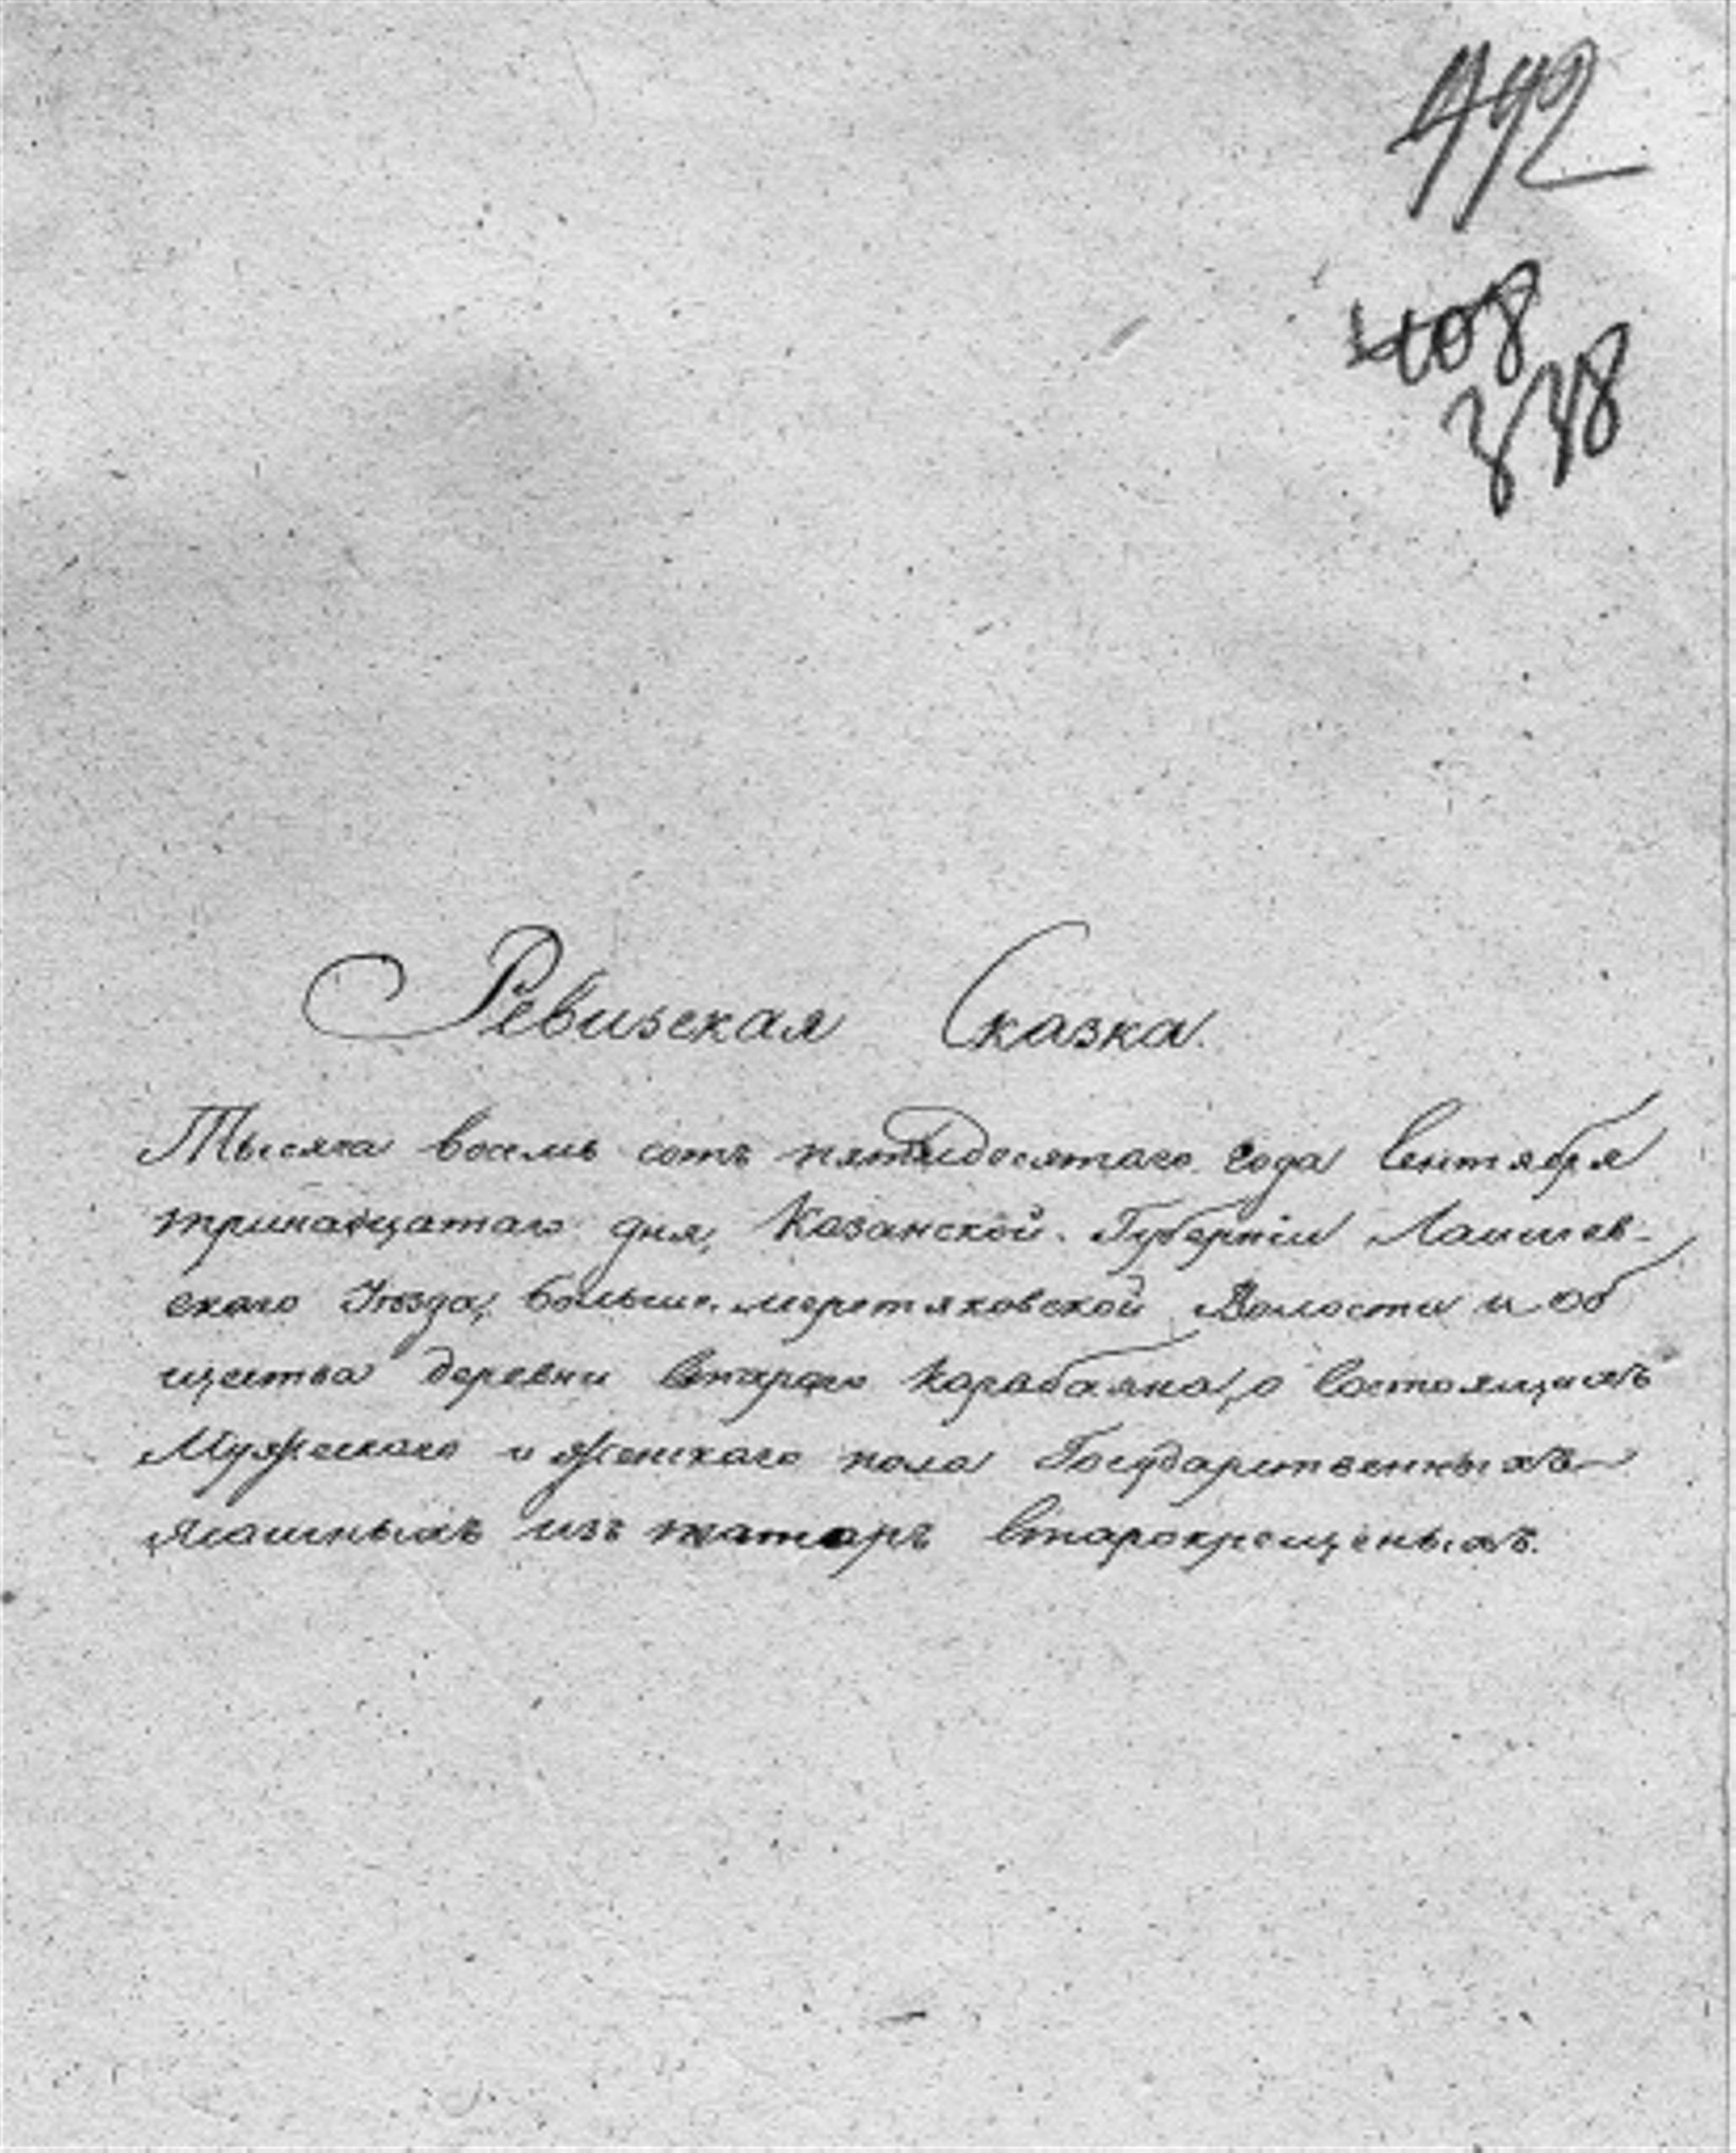 492
408
338
Ревизская Сказка.
Тысяча восемь сотъ пятидесятаго года Сентября
тринадцатаго дня, Казанской Губерніи Лаишев-
скаго Уѣзда, больше-меретяковской Волости и об
щества деревни Стараго Карабаяна, о состоящихъ
Мужескаго и Женскаго пола Государственныхъ
Ясашныхъ изъ татаръ Старокрещеныхъ.